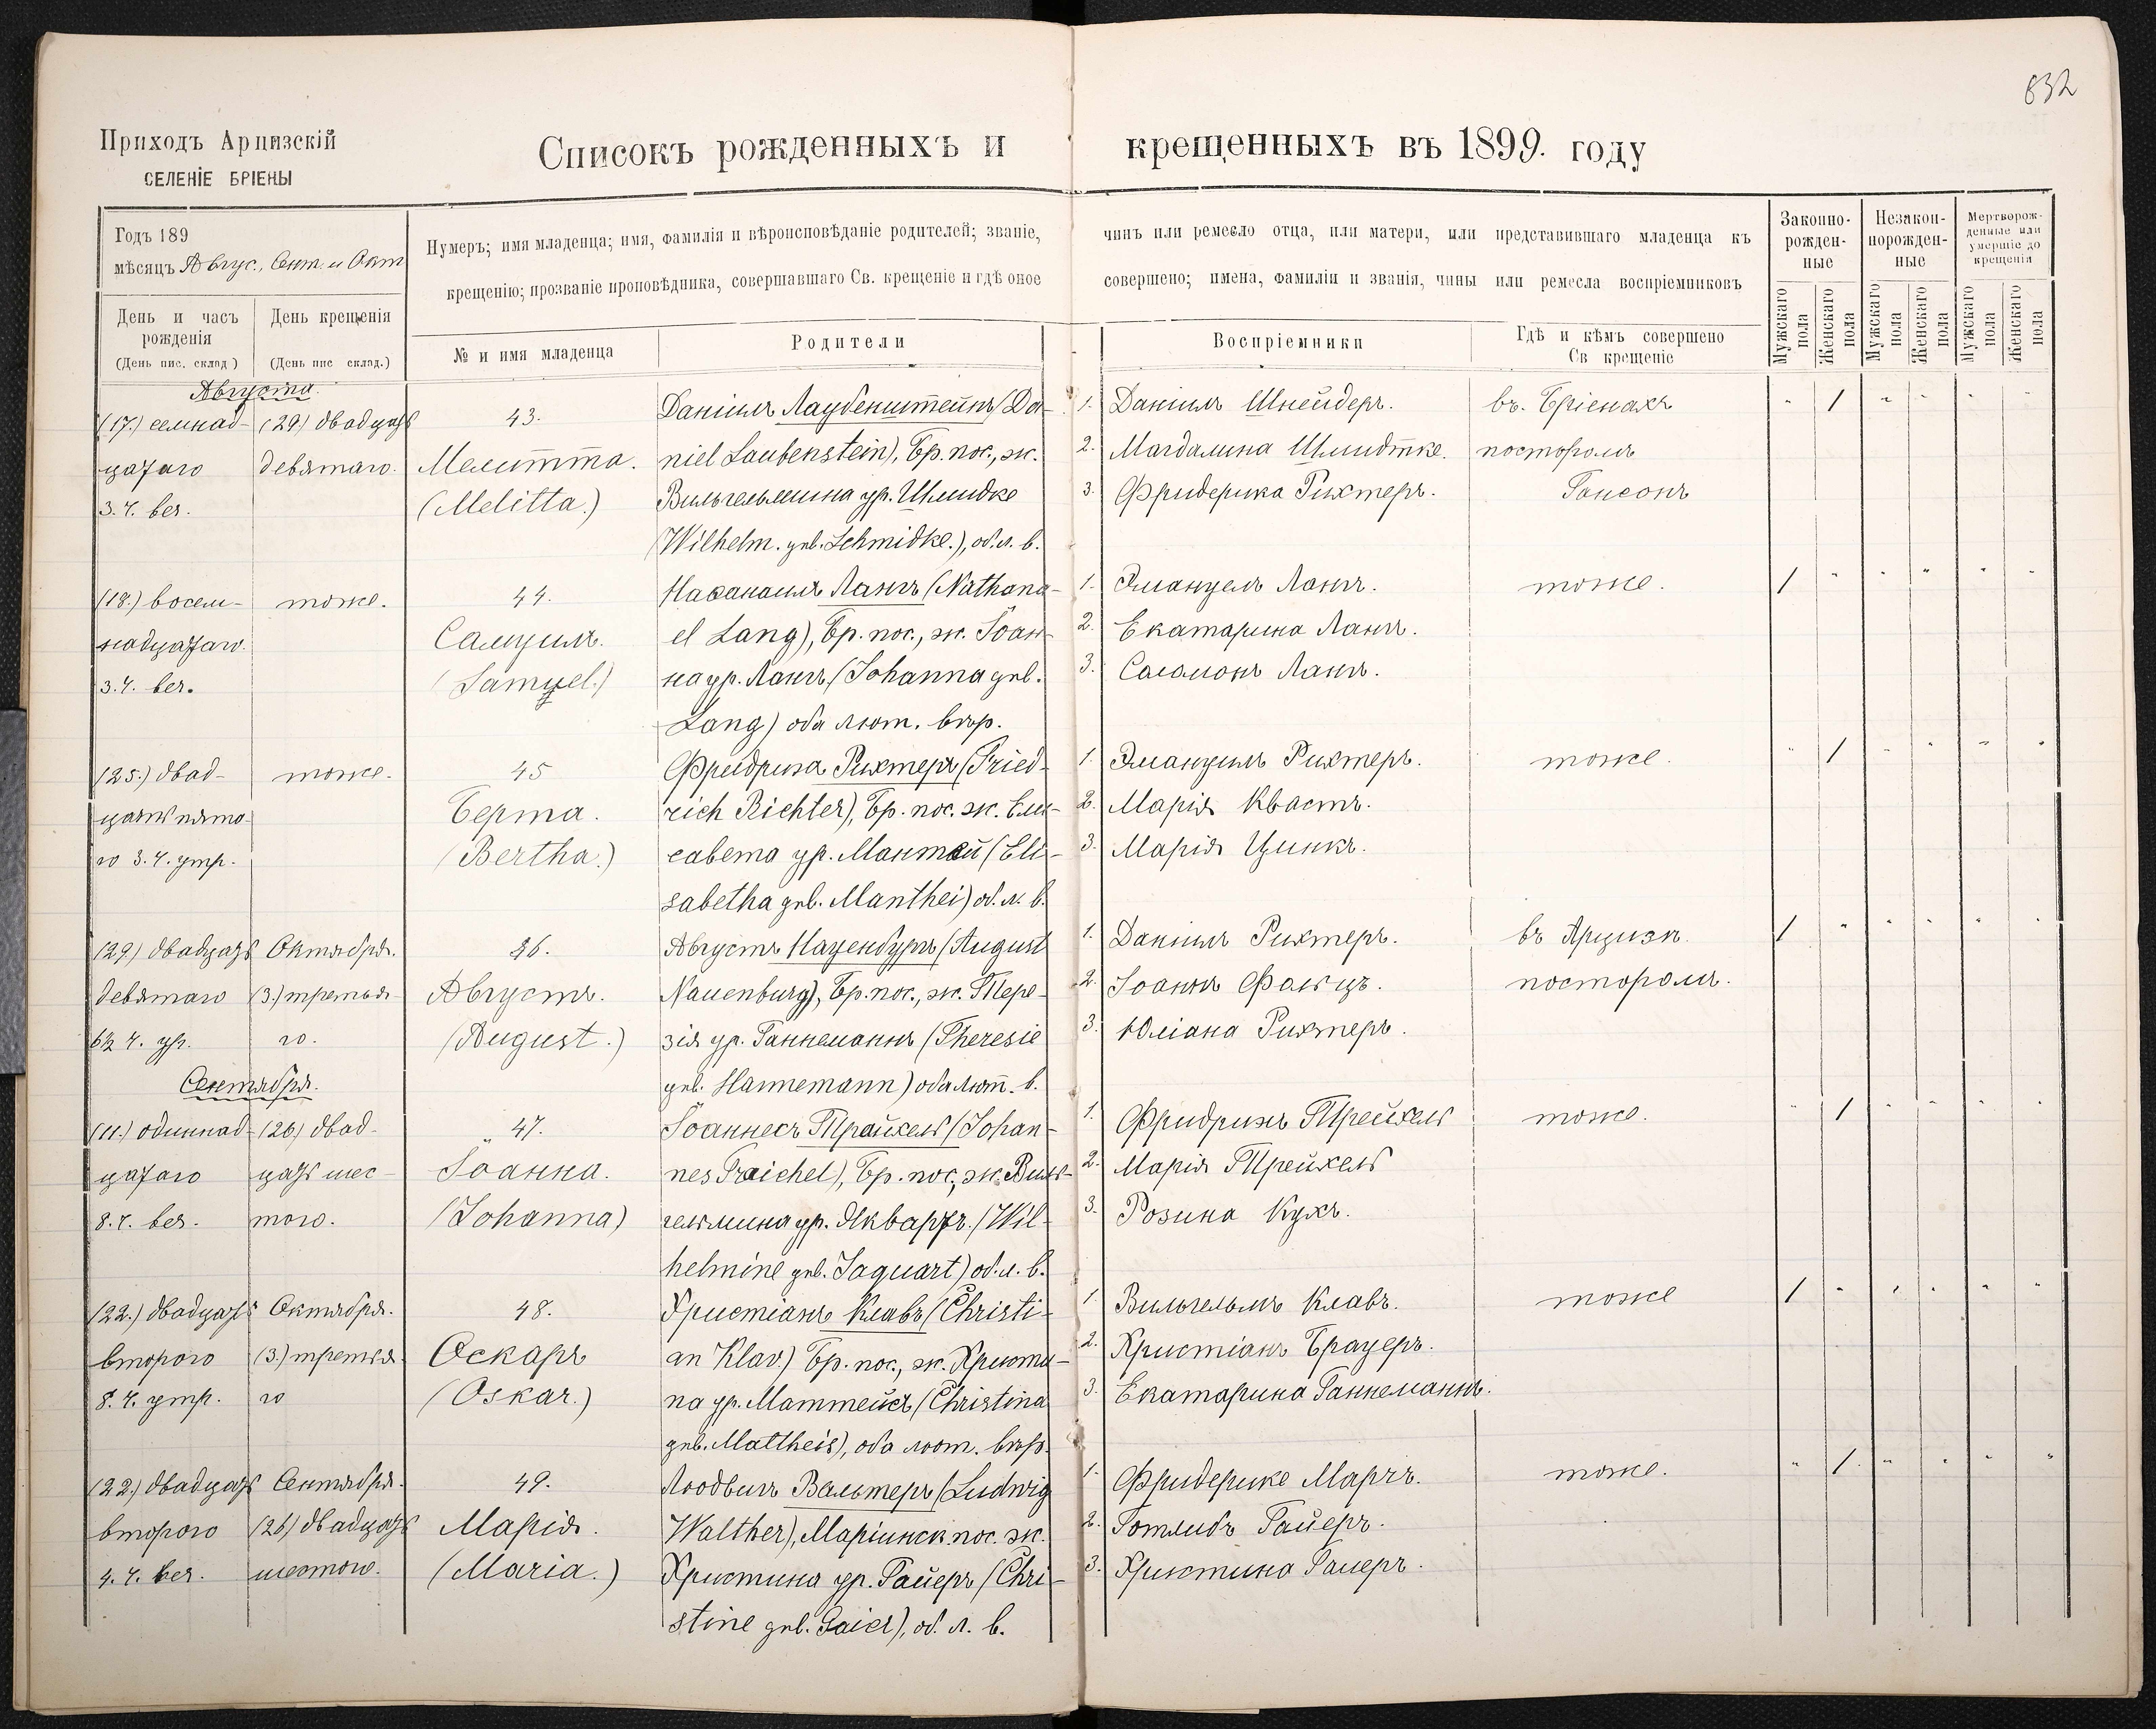 832
Приходъ Арцизскій
СЕЛЕНІЕ БРІЕНЫ
Списокъ рожденныхъ и крещенныхъ въ 1899. году
Годъ 189
мѣсяцъ Авгус., Сент. и Окт
Нумеръ; имя младенца; имя, фамилія и вѣроисповѣданіе родителей; званіе, чинъ или ремесло отца, или матери, или представившаго младенца къ
крещенію; прозваніе проповѣдника, совершавшаго Св. крещеніе и гдѣ оное совершено; имена, фамиліи и званія, чины или ремесла воспріемниковъ
Законно-
рожден-
ные
Незакон-
норожден-
ные
Мертворож-
денные или
умершіе до
крещенія
День и часъ
рожденія
(День пис. склад.)
День крещенія
(День пис склад.)
№ и имя младенца
Родители
Воспріемники
Гдѣ и кѣмъ совершено
Св крещеніе
Мужскаго пола
Женскаго пола
Мужскаго пола
Женскаго пола
Мужскаго пола
Женскаго пола
Августа.
(17.) семнад-
цатаго
3. ч. веч.
(29) двадцать
девятаго.
43.
Мелитта.
(Melitta.)
Даніилъ Лаубенштейнъ (Da-
niel Laubenstein), Бр. пос., ж.
Вильгельмина ур. Шмидке
(Wilhelm. geb. Schmidke.), об. л. в.
1. Даніилъ Шнейдеръ.
2. Магдалина Шмидтке.
3. Фридерика Рихтеръ.
въ. Бріенахъ
пасторомъ
Гансонъ
" 1 " " " "
(18.) восем-
надцатаго.
3. ч. веч.
тоже.
44.
Самуилъ.
(Samuel.)
Наѳанаилъ Лангъ (Nathana-
el Lang), Бр. пос., ж. Іоан-
на ур. Лангъ (Johanna geb.
Lang) оба лют. вѣр.
1. Эмануелъ Лангъ.
2. Екатарина Лангъ.
3. Саломонъ Лангъ.
тоже.
1 " " " " "
(25.) двад-
цать пята-
го 3. ч. утр.
тоже.
45
Берта.
(Bertha.)
Фридриха Рихтеръ (Fried-
rich Richter), Бр. пос. ж. Ели-
савета ур. Мантей (Eli-
sabetha geb. Manthei) об. л. в.
1. Эмануилъ Рихтеръ.
2. Марія Квастъ.
3. Марія Цинкъ.
тоже.
" 1 " " " "
(29) двадцать
девятаго
6½ ч. ут.
Октября.
(3.) третья-
го.
46.
Августъ.
(August.)
Августъ Науенбургъ (August
Nauenburg), Бр. пос., ж. Тере-
зія ур. Ганнеманнъ (Theresie
geb. Hannemann) оба лют. в.
1. Даніилъ Рихтеръ.
2. Іоаннъ Фальцъ.
3. Юліана Рихтеръ.
въ Арцизѣ
пасторомъ.
1 " " " " "
Сентября.
(11.) одиннад-
цатаго
8. ч. веч.
(26) двад-
цать шес-
того.
47.
Іоанна.
(Johanna)
Іоаннесъ Трайхель (Johan-
nes Traichel), Бр. пос., ж. Виль-
гельмина ур. Яквартъ. (Wil-
helmine geb. Jaquart) об. л. в.
1. Фридрихъ Трейхель
2. Марія Трейхель
3. Розина Кухъ.
тоже.
" 1 " " " "
(22.) двадцать
второго
8. ч. утр.
Октября.
(3.) третья-
го
48.
Оскаръ
(Oskar.)
Христіанъ Клавъ (Christi-
an Klav.) Бр. пос., ж. Христи-
на ур. Маттейсъ (Christina
geb. Mattheis), оба лют. вѣр.
1. Вильгельмъ Клавъ.
2. Христіанъ Брауеръ.
3. Екатарина Ганнеманнъ.
тоже
1 " " " " "
(22.) двадцать
второго
4. ч. веч.
Сентября.
(26) двадцать
шестого.
49.
Марія.
(Maria.)
Людвигъ Вальтеръ (Ludwig
Walther), Маріинск. пос. ж.
Христина ур. Гайеръ (Chri-
stine geb. Gaier), об. л. в.
1. Фридерике Марчъ.
2. Готлибъ Гайеръ.
3. Христина Гаиеръ.
тоже.
" 1 " " " "